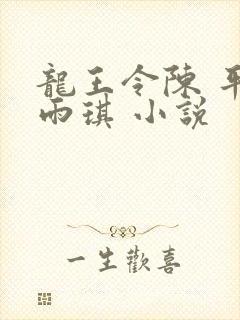 龍王令陳 平
雨琪 小說
一生歡喜